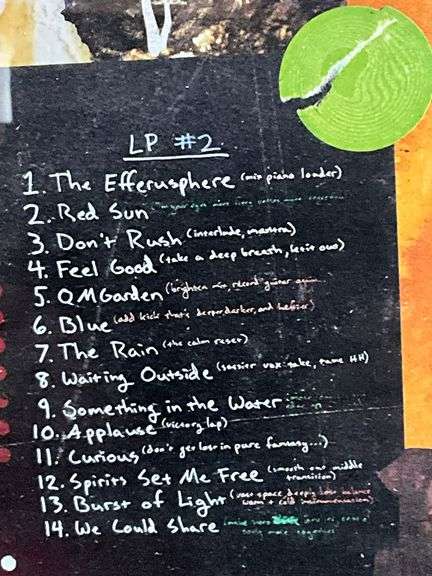 LP #2
1. The Efferusphere (mix piano louder)
2. Red Sun
3. Don't Rush (interlude, mantra)
4. Feel Good (take a deep breath, let it out)
5. QMGarden (brighten mix, record guitar again
6. Blue (add kick that's deeper, darker, and heavier)
7. The Rain (the calm resets)
8. Waiting Outside (sassier vox take, tame HH)
9. Something in the Water
10. Applause (victory lap)
11. Curious (don't get lost in pure fantasy...)
12. Spirits Set Me Free (smooth out middle
transition)
13. Burst of Light (vast space, deeply balance
warm + cold instrumentation)
14. We Could Share (make